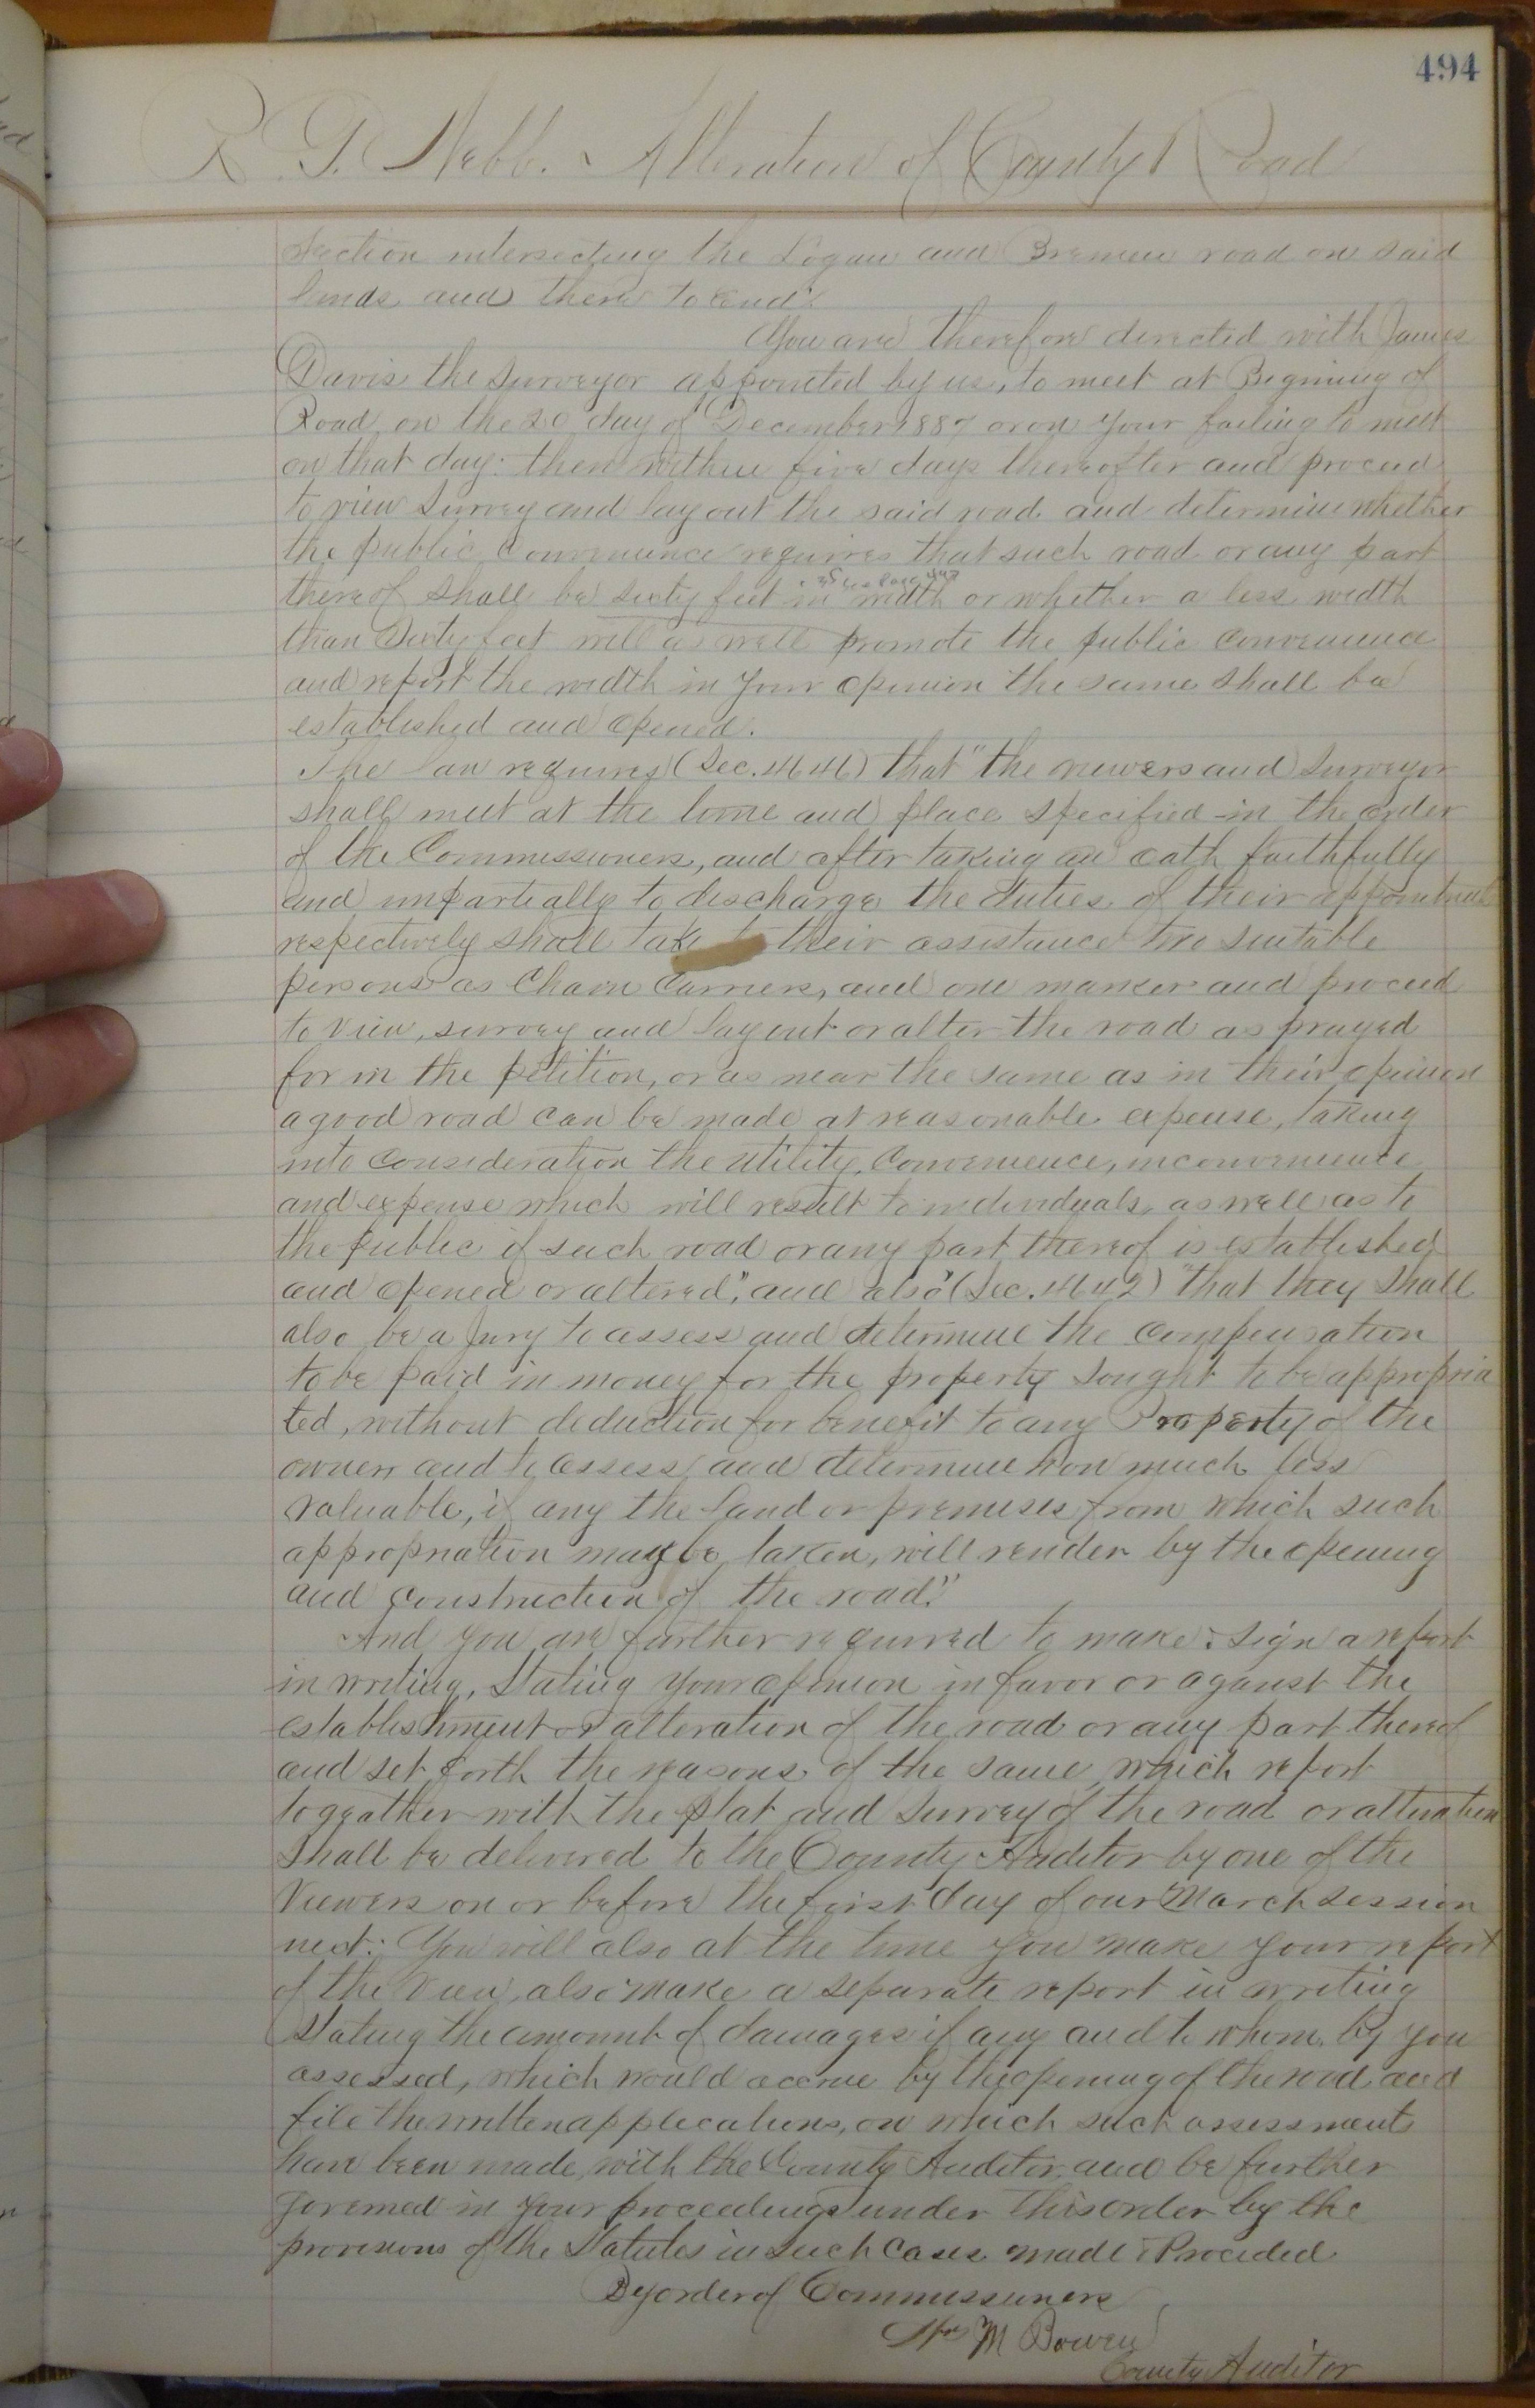 494
R. G. Webb. Alteration of County Road
Section intersecting the Logan and Bremen road on said
lands and there to end".
You are therefore directed with James
Davis the Surveyor appointed by us, to meet at Begining of
Road on the 20 day of December 1887 or on your failing to meet
on that day: then within five days thereafter and proceed
to view Survey and lay out the said road and determine whether
the public Convenience requires that such road or any part
thereof shall be Sixty feet in width or whether a less width
than Sixty feet will as well promote the public Convenience
and report the width in your opinion the same shall be
established and opened.
The law requires (Sec. 4646) that "the viewers and Surveyor
shall meet at the time and place specified in the order
of the Commissioners, and after taking an oath faithfully
and impartially to discharge the duties of their appointment
respectively shall take to their assistance two suitable
persons as Chain Carriers, and one marker and proceed
to view, survey and lay out or alter the road as prayed
for in the petition, or as near the same as in their opinion
a good road can be made at reasonable expense, taking
into Consideration the utility, Convenience, inconvenience
and expense which will result to individuals, as well as to
the public if such road or any part thereof is established
and opened or altered", and also (Sec. 4642) "that they Shall
also be a Jury to assess and determine the Compensation
to be paid in money for the property sought to be appropria
ted, without deduction for benefit to any Property of the
owner, and to assess and determine how much less
valuable, if any the land or premises from which such
appropriation may be taken, will render by the opening
and Construction of the road."
And you are further required to make & sign a report
in writing, Stating your opinion in favor or aganst the
establishment or alteration of the road or any part thereof
and set forth the reasons of the same, which report
togeather with the plat and survey of the road or alteration
Shall be delivered to the County Auditor by one of the
Viewers on or before the first day of our March Session
next: You will also at the time you make your report
of the View, also make a separate report in writing
Stating the amount of damages if any and to whom by you
assessed, which would accrue by the opening of the road and
file the written applications, on which such assessments
have been made, with the County Auditor, and be further
governed in your proceedings under this order by the
provisions of the Statutes in such Cases made & Provided
By order of Commissioners
Wm M Bowen
County Auditor